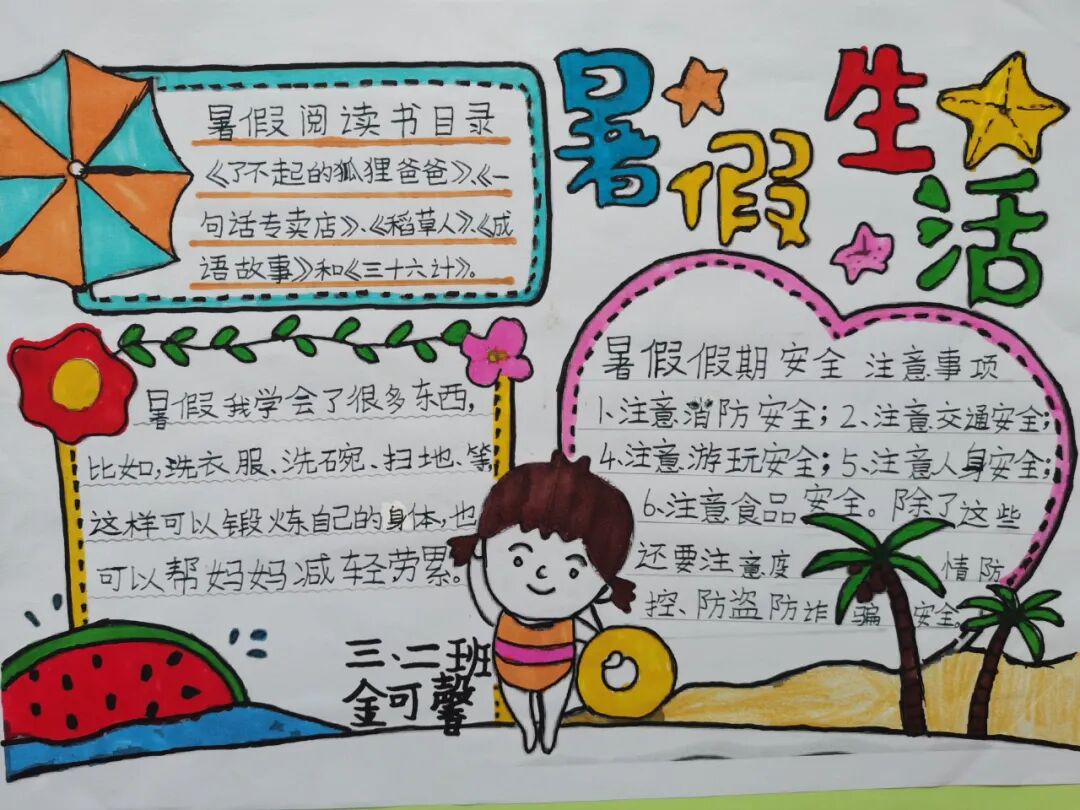 暑假生活
暑假阅读书目录
《了不起的狐狸爸爸》、《一
句话专卖店》、《稻草人》、《成
语故事》和《三十六计》。
暑假我学会了很多东西,
比如,洗衣服、洗碗、扫地、等,
这样可以锻炼自己的身体,也
可以帮妈妈减轻劳累。
暑假假期安全注意事项
1.注意消防安全;2、注意交通安全;
4、注意游玩安全;5、注意人身安全;
6、注意食品安全。除了这些
还要注意疫情防
控、防盗防诈骗安全。
三、二班
金可馨